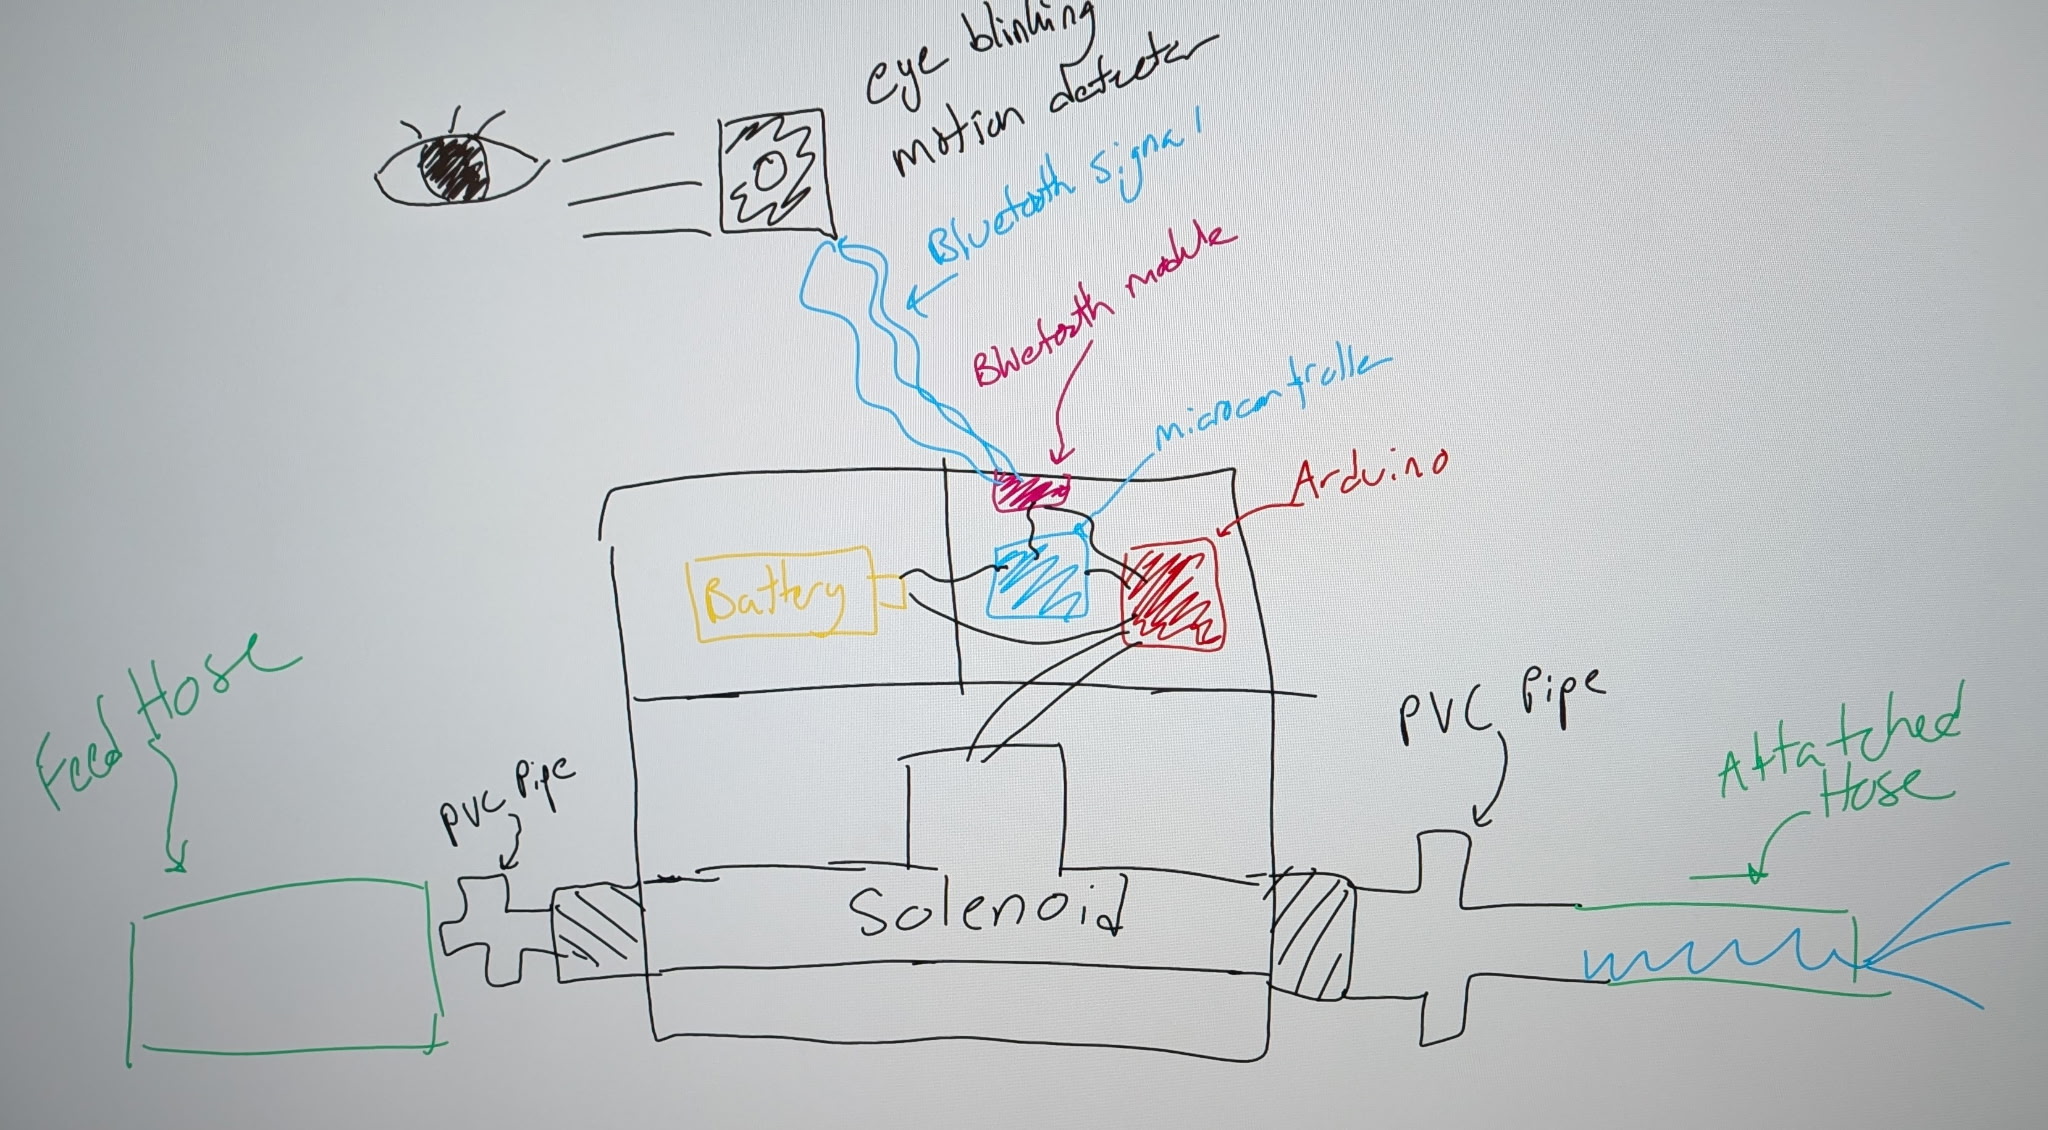 eye blinking
motion detector
Bluetooth signal
Bluetooth module
microcontroller
Arduino
Battery
Feed Hose
PVC Pipe
PVC Pipe
Attatched
Hose
Solenoid